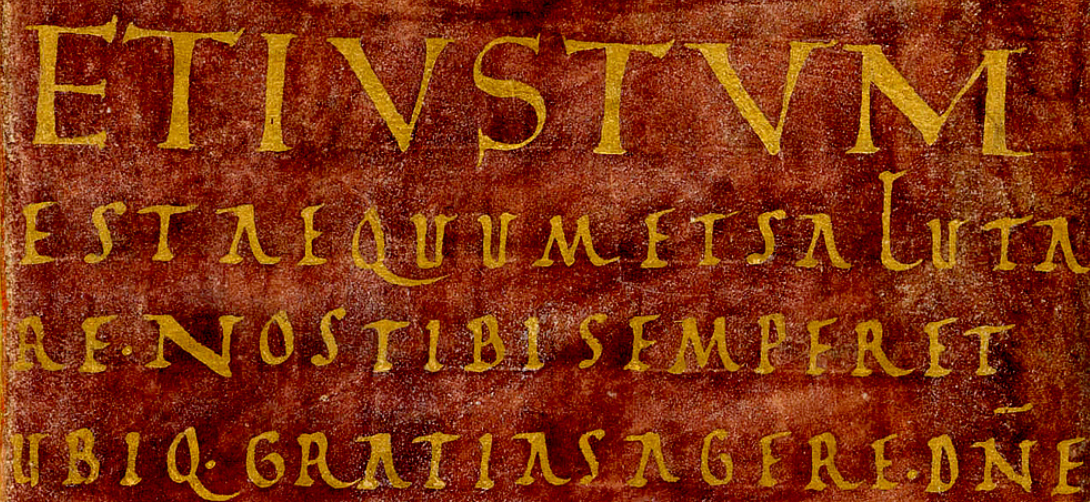 ETIUSTUM
ESTAEQUUMETSALUTA
RE·NOSTIBISEMPERET
UBIQ·GRATIASAGERE·DN̄E